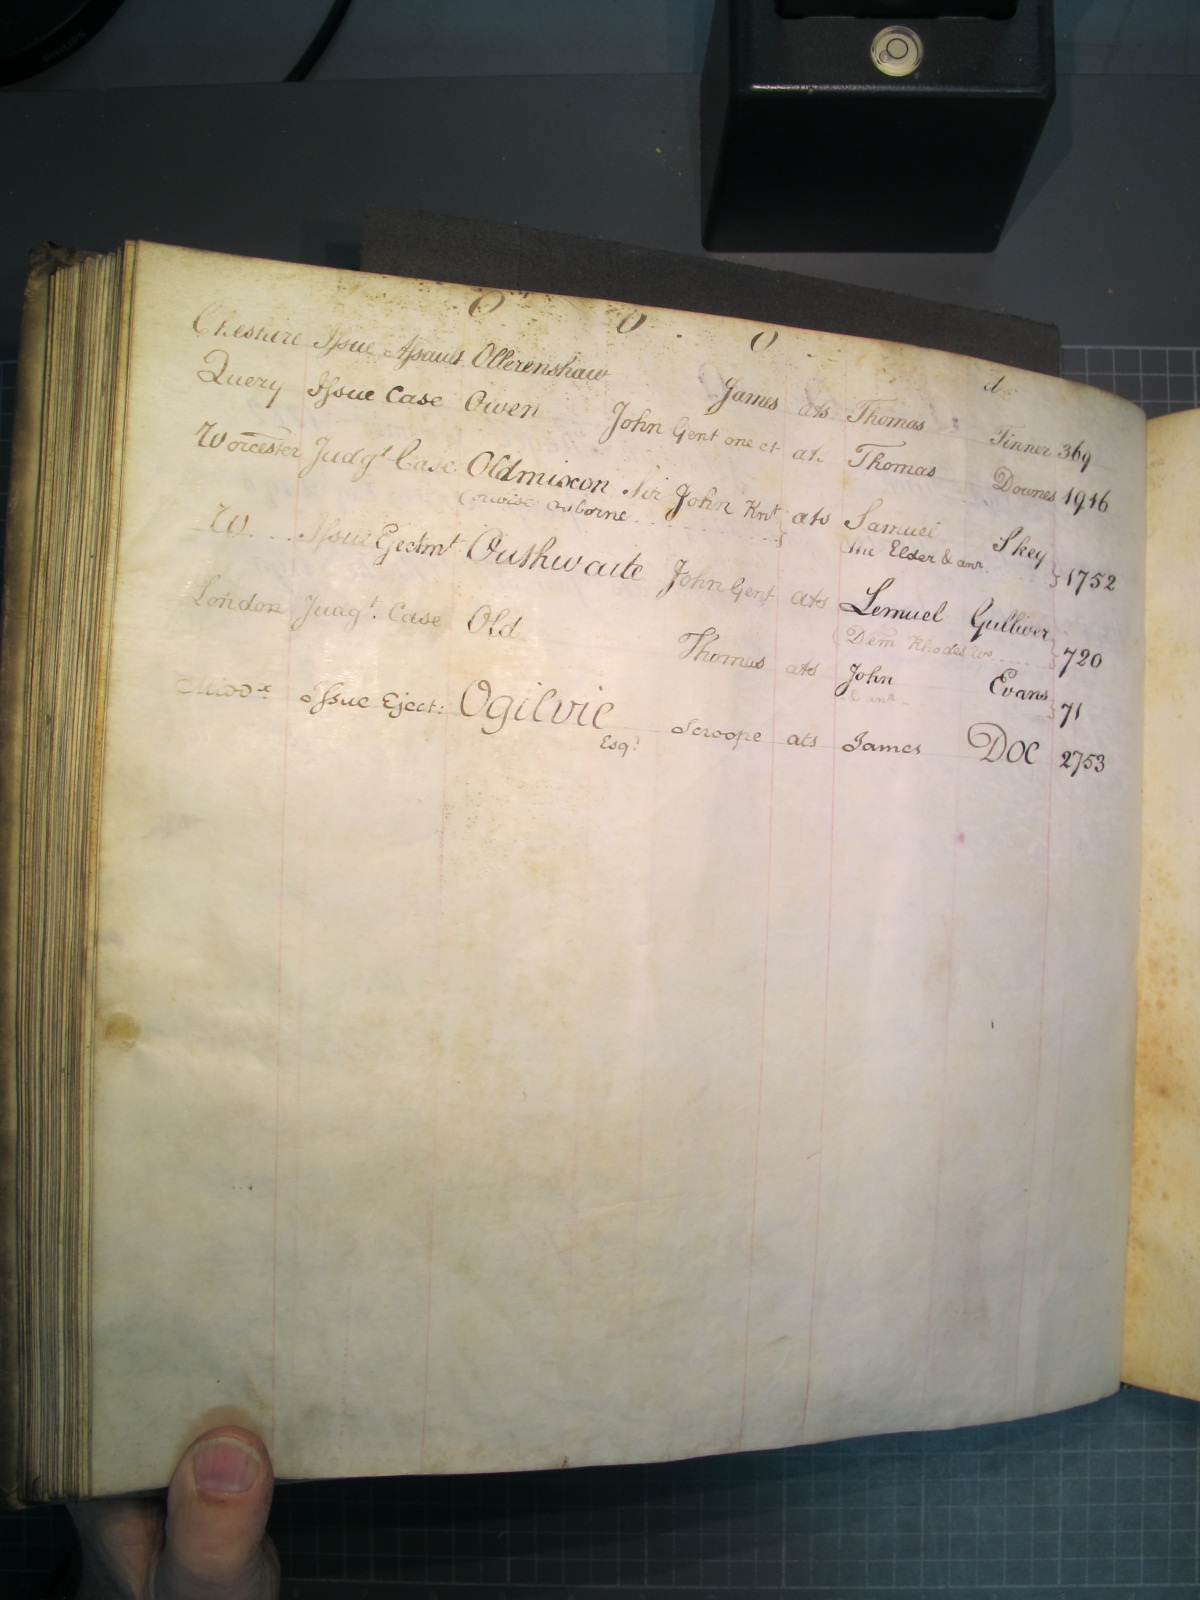 O O O
Cheshire Issue Assault Ollerenshaw James ats Thomas Finner 369
Query Issue Case Owen John Gent one &c ats Thomas Downes 1916
Worcester Judgt Case Oldmixon Sir John Knt ats Samuel Skey
orwise Osborne the Elder & anr 1752
W Issue Ejectmt Outhwaite John Gent ats Lemuel Gulliver
Dem Rhodes 720
London Judgt. Case Old Thomas ats John Evans
& anr 71
Middx Issue Eject: Ogilvie Scroope ats James Doe 2753
Esqr